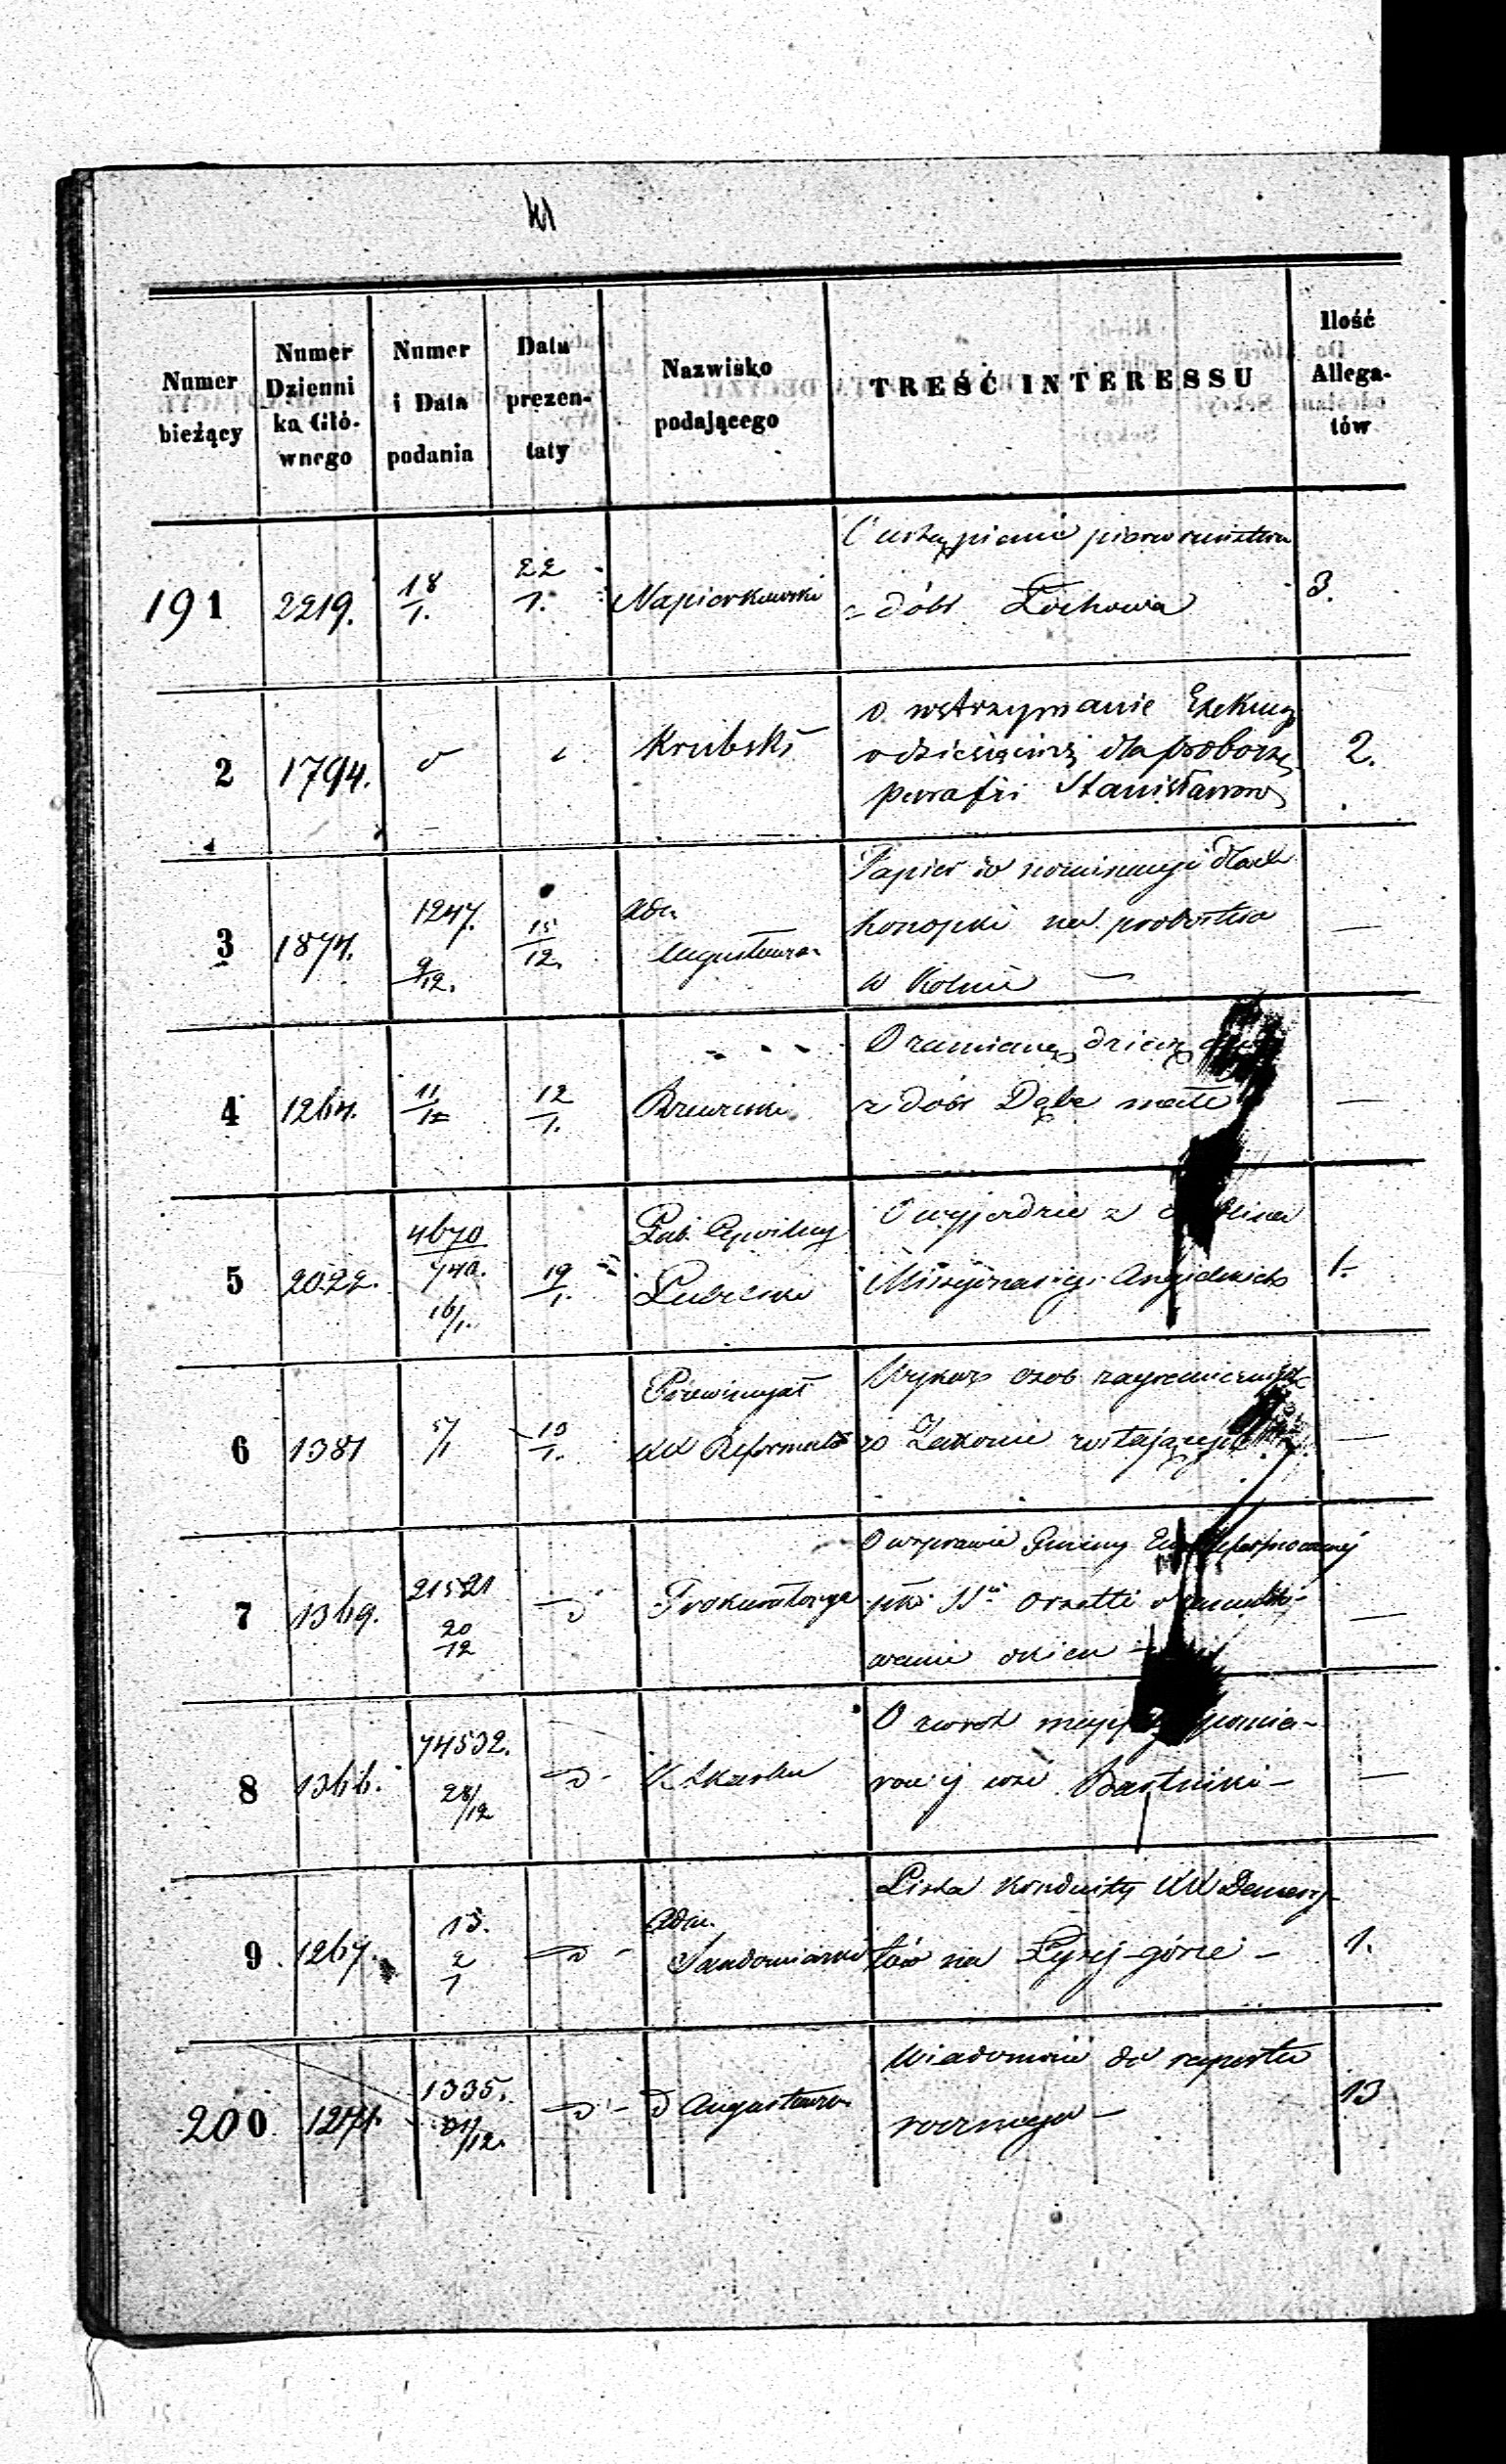 Numer bieżący
Numer Dzienni ka Głó- wnego
Numer i Data podania
Data prezen- taty
Nazwisko podającego
TREŚĆ INTERESSU
Ilość Allega- tów
191 2219. 18/1. 22/1. Napiorkowski
O ustąpienie pierwszeństwa
z dóbr Łochowa 3.
2 1794. Krubski
o wstrzymanie Exekucyi
o dziesięcinę dla proboszcza
parafii Stanisławow 2.
3 1874. 1247. 9/12. 15/12. Adm. Augustowska
Papier do nominacyi dla X
Konopki na probostwo
w Kolnie —
4 1264. 11/12 12/1.
O zamianę dziesięciny
z dóbr Dąbe małe —
5 2022. 4670/740. 16/1. 19/1. Gub. Cywilny Lubelski
O wyjezdzie z
Missyonarzy Angielskich 1.
6 1381 5/1 10/1. Prowincyał XX Reformatów
Wykaz osob zagranicznych
w Zakonie zostających —
7 1369. 21521 20/12 Prokuratorya
O wsprawie Gminy
pko Orsetti o
wanie okien —
8 1366. 74532. 28/12 K Skarbu
O zwrot mappy pomia-
rowej wsi Bartniki —
9 1267. 13. 2/1 Adm. Sandomierski
Lista Konduity XX Demery-
tów na Łysej-górze — 1.
200 1271. 1335. 31/12. Augustows.
Wiadomość do raportu
rocznego — 13